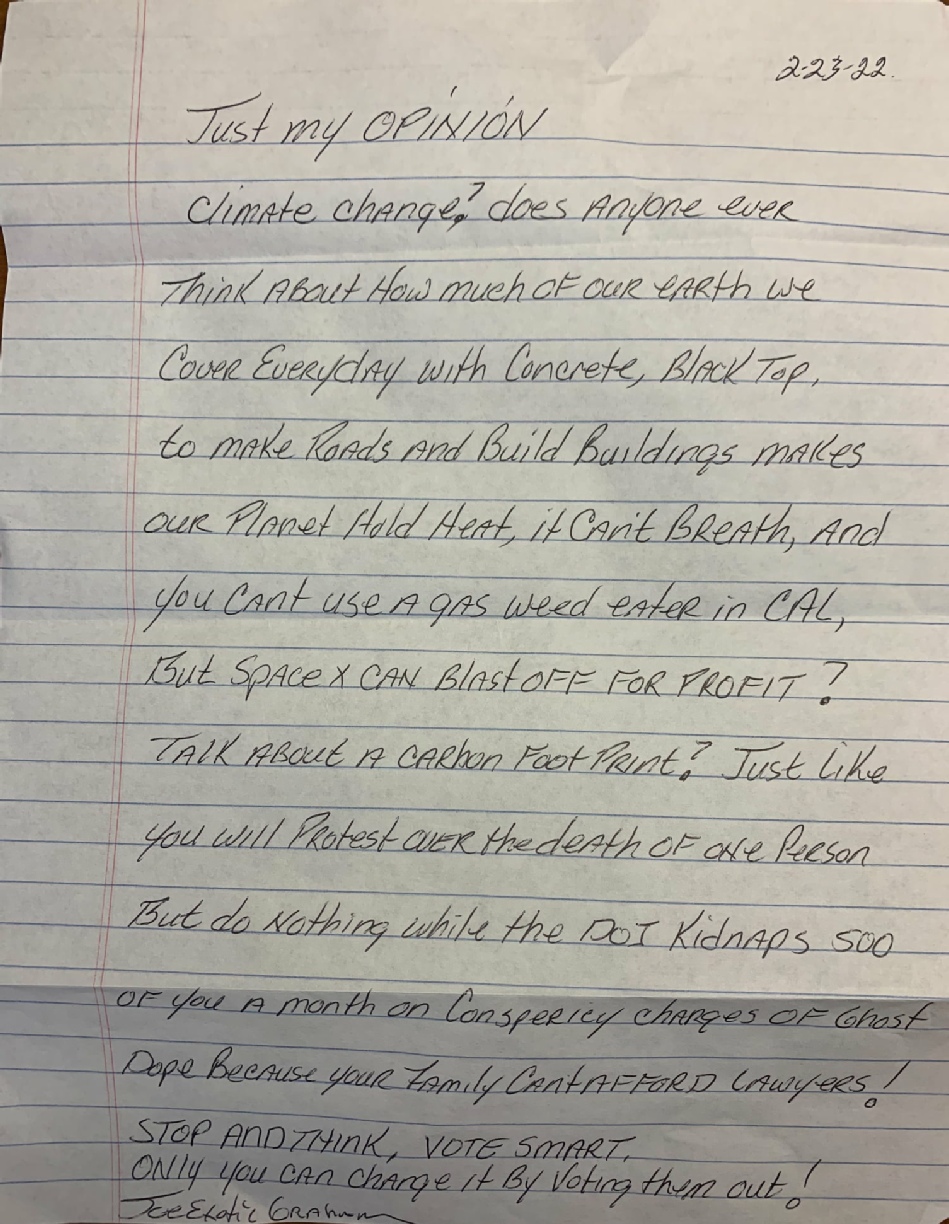 2-23-22.
Just my OPINION
Climate change? does Anyone ever
Think About How much of our earth we
Cover Everyday with Concrete, Black Top,
to make Roads and Build Buildings makes
our Planet Hold Heat, it Can't Breath, And
you Cant use A gas weed eater in CAL,
But Space X CAN Blast OFF FOR PROFIT?
Talk About A carbon Foot Print? Just like
you will Protest over the death of one Person
But do Nothing while the DOI Kidnaps 500
of you A month on Conspericy charges of Ghost
Dope Because your Family Cant AFFORD Lawyers!
STOP AND THINK, VOTE SMART,
ONly you can change it By Voting them out!
Joe Exotic